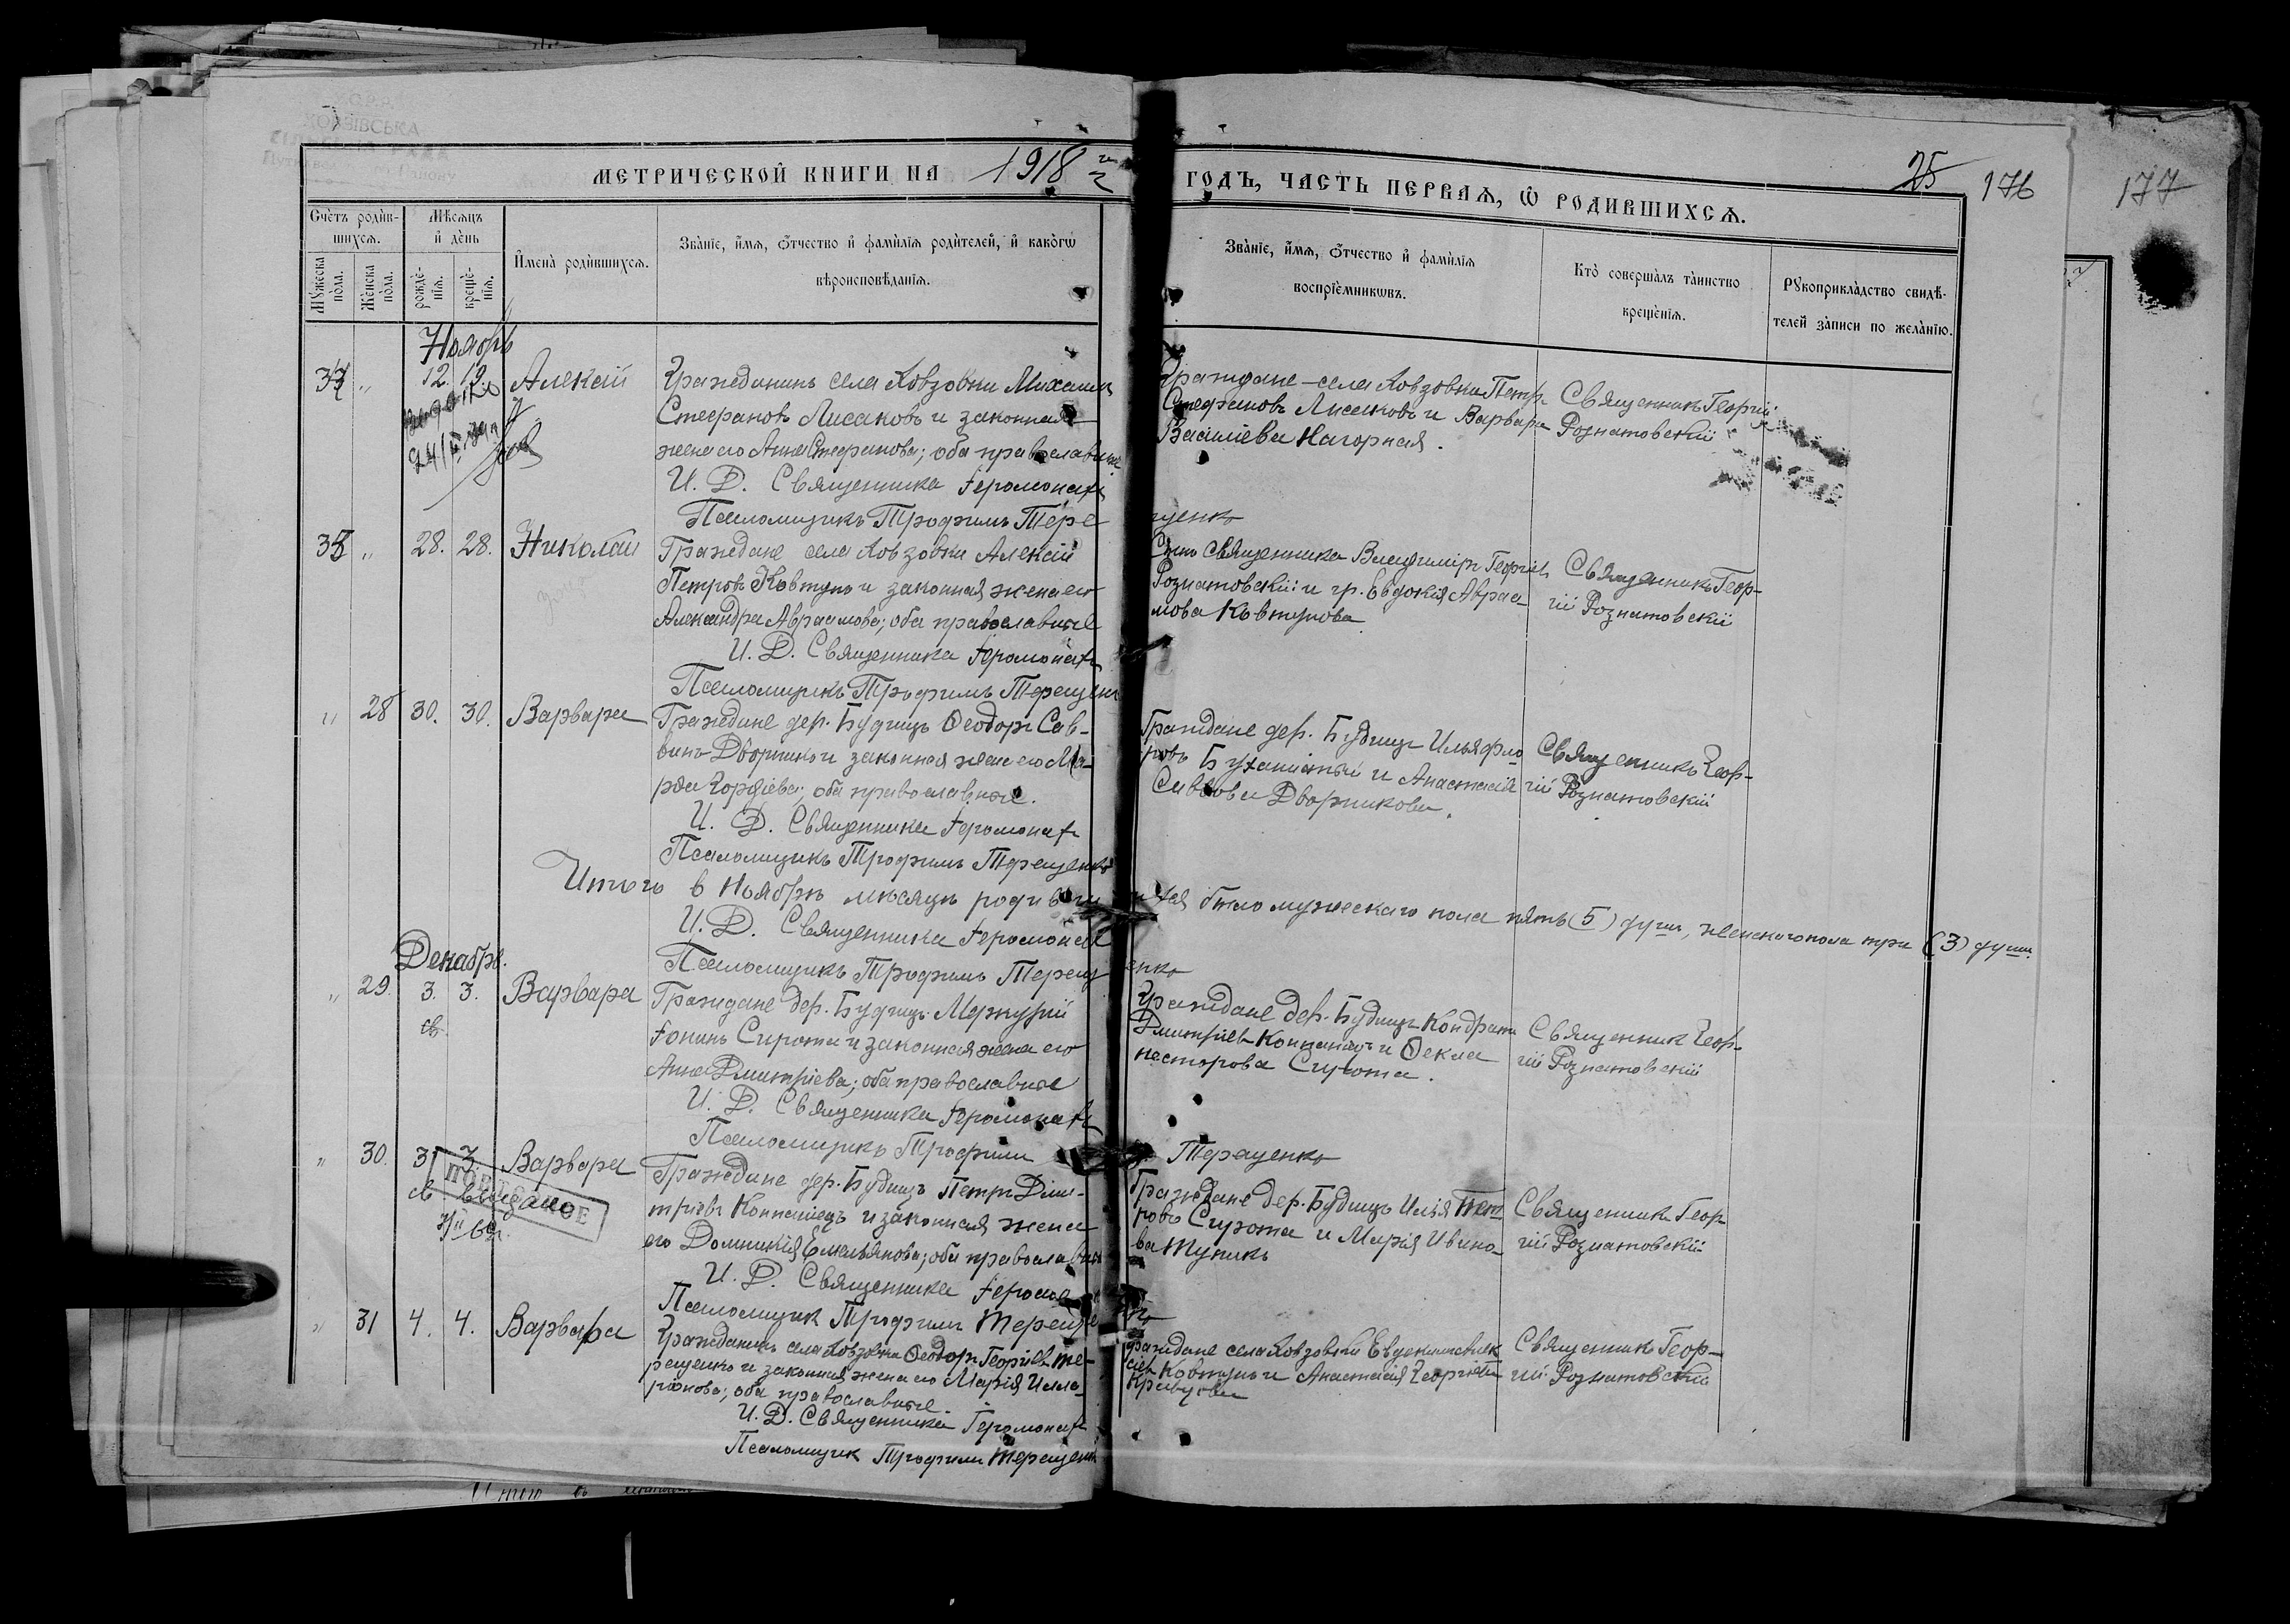 У.С.Р.Р.
ХОВЗІВСЬКА
МЕТРИЧЕСКОЙ КНИГИ НА 1918 г. ГОДЪ, ЧАСТЬ ПЕРВАЯ, Ѿ РОДИВШИХСЯ.
25 176 177
Счетъ родив-
шихся.
Мужеска пола.
Женска пола.
Мѣсяцъ
и день
рожде-
нія.
креще-
нія.
Имена родившихся.
Званіе, имя, отчество и фамилія родителей, и какогѡ
вѣроисповѣданія.
Званіе, имя, отчество и фамилія
воспріемникѡвъ.
Кто совершалъ таинство
крещенія.
Рукоприкладство свидѣ-
телей записи по желанію.
Ноябрь
12. 19. Алексій
Гражданинъ села Ховзовки Михаилъ
Стефановъ Лисаковъ и законная
жена его Анна Стефанова; оба православн.
И. Д. Священника Іеромонахъ
Псаломщикъ Трофимъ Терещенко
Граждане села Ховзовки Петръ
Стефановъ Лисаковъ и Варвара
Василіева Нагорная.
Священникъ Георгій
Рознатовскій
" 28. 28. Николай
Граждане села Ховзовки Алексій
Петровъ Ковтунъ и законная жена его
Александра Авраамова; оба православные
И. Д. Священника Іеромонахъ
Псаломщикъ Трофимъ Терещен
Сынъ Священника Владиміръ Георгіев
Рознатовскій и гр. Евдокія Авраа-
мова Ковтунова
Священникъ Геор-
гій Рознатовскій
" 28 30. 30. Варвара
Граждане дер. Будищъ Ѳеодоръ Сав-
винъ Дворникъ и законная жена его Ма-
рѳа Гордіева; оба православные.
И. Д. Священника Іеромонах
Псаломщикъ Трофимъ Терещенко
Граждане дер. Будищъ Илья Фло
ровъ и Анастасія
Саввова Дворникова.
Священникъ Геор-
гій Рознатовскій
Итого в Ноябрѣ мѣсяцѣ родившихся было мужескаго пола пять (5) душ, женскаго пола три (3) души.
И. Д. Священника Іеромонах
Псаломщикъ Трофимъ Терещенко
Декабрь.
" 29. 3. 3. Варвара
св.
Граждане дер. Будищъ Меркурій
Іонинъ Сирота и законная жена его
Анна Дмитріева; оба православные
И. Д. Священника Іеромонах
Псаломщикъ Трофимъ Терещенко
Граждане дер. Будищъ Кондратъ
Дмитріевъ и Ѳекла
Несторова Сирота.
Священник Геор-
гій Рознатовскій
" 30. 3. 3. Варвара
св выдано
ПОВТОРНОЕ
Граждане дер. Будищъ Петръ Дми-
тріевъ и законная жена
его Домникія Емельянова; оба православн
И. Д. Священника Іером
Псаломщик Трофимъ Тереще
Граждане дер. Будищъ Илья Пет
ровъ Сирота и Марія Ивано-
ва Тупикъ
Священник Геор
гій Рознатовскій
" 31 4. 4. Варвара
Гражданинъ села Ховзовка Ѳеодоръ Георгіев Те-
рещенко и законная жена его Марія Илла-
ріонова; оба православные.
И. Д. Священника Іеромонах
Псаломщик Трофимъ Терещенк
Граждане села Ховзовки
Ковтунъ и Анастасія Георгіев
Кравцова
Священникъ Геор-
гій Рознатовскій